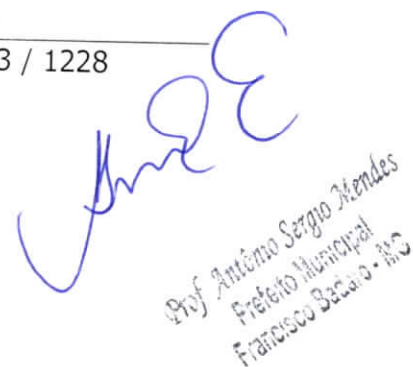 3 / 1228
Prof Antônio Sergio Mendes
Prefeito Municipal
Francisco Badaró - MG